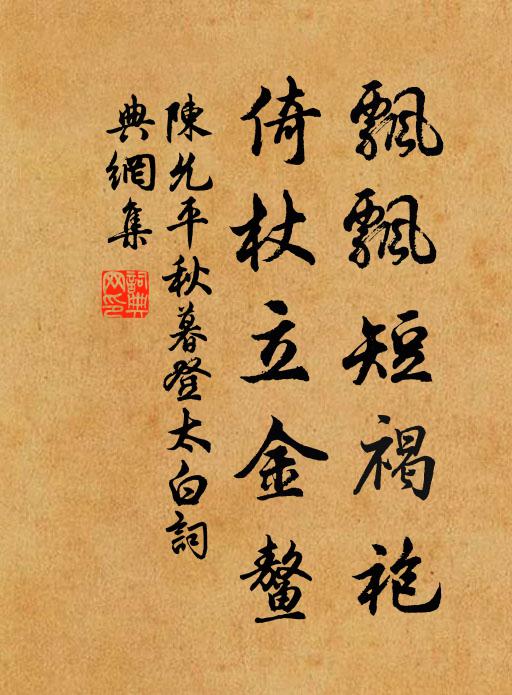 飄飄短褐袍
倚杖立金鰲
陳允平秋暮登太白詞
典網集
詞典網印